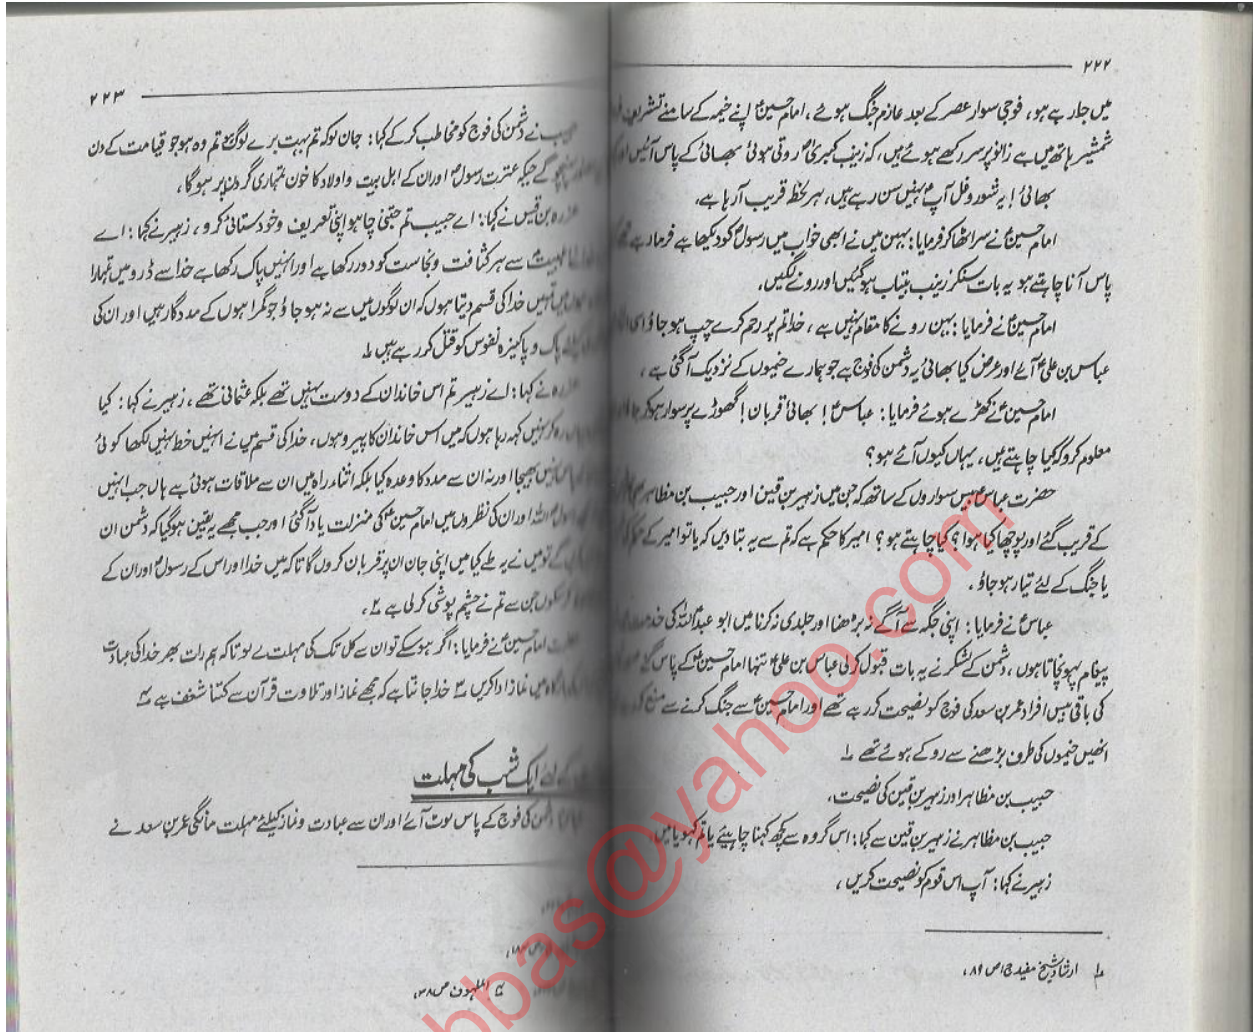 ۲۲۲
میں جا رہے ہو، فوجی سوار عصر کے بعد عازم جنگ ہوئے، امام حسینؑ اپنے خیمہ کے سامنے تشریف
شمشیر ہاتھ میں ہے زانو پر سر رکھے ہوئے ہیں، کہ زینب کبریٰؑ روتی ہوئی بھائی کے پاس آئیں اور
بھائی! یہ شور و غل آپ نہیں سن رہے ہیں، ہر لحظہ قریب آ رہا ہے،
امام حسینؑ نے سر اٹھا کر فرمایا: بہن میں نے ابھی خواب میں رسولؐ کو دیکھا ہے فرما رہے تھے
پاس آنا چاہتے ہو یہ بات سنکر زینب بیتاب ہو گئیں اور رونے لگیں،
امام حسینؑ نے فرمایا: بہن رونے کا مقام نہیں ہے، خدا تم پر رحم کرے چپ ہو جاؤ اسی
عباس بن علیؑ آئے اور عرض کیا بھائی یہ دشمن کی فوج ہے جو ہمارے خیموں کے نزدیک آ گئی ہے،
امام حسینؑ نے کھڑے ہوئے فرمایا: عباسؑ! بھائی قربان! گھوڑے پر سوار ہو کر جاؤ
معلوم کرو کہ کیا چاہتے ہیں، یہاں کیوں آئے ہو؟
حضرت عباسؑ بیس سواروں کے ساتھ کہ جن میں زہیر بن قین اور حبیب بن مظاہر
کے قریب گئے اور پوچھا کیا ہوا؟ کیا چاہتے ہو؟ امیر کا حکم ہے کہ تم سے یہ بتا دیں کہ یا تو امیر کے حکم
یا جنگ کے لئے تیار ہو جاؤ،
عباسؑ نے فرمایا: اپنی جگہ سے آگے نہ بڑھنا اور جلدی نہ کرنا میں ابو عبداللہؑ کی
پیغام پہونچاتا ہوں، دشمن کے لشکر نے یہ بات قبول کر لی عباس بن علیؑ تنہا امام حسینؑ کے پاس گئے
کی باقی بیس افراد عمر بن سعد کی فوج کو نصیحت کر رہے تھے اور امام حسینؑ سے جنگ کرنے سے منع
انھیں خیموں کی طرف بڑھنے سے روکے ہوئے تھے ۱
حبیب بن مظاہر اور زہیر بن قین کی نصیحت،
حبیب بن مظاہر نے زہیر بن قین سے کہا: اس گروہ سے کچھ کہنا چاہئے یا تم کہو یا میں،
زہیر نے کہا: آپ اس قوم کو نصیحت کریں،
۱ ارشاد شیخ مفید ج۱ ص ۸۹،
۲۲۳
حبیب نے دشمن کی فوج کو مخاطب کر کے کہا: جان لو کہ تم بہت برے لوگ ہو تم وہ ہو جو قیامت کے دن
پہنچو گے جبکہ عترت رسولؐ اور ان کے اہل بیت و اولاد کا خون تمہاری گردن پر ہو گا،
عزرہ بن قیس نے کہا: اے حبیب تم جتنی چاہو اپنی تعریف و خودستائی کرو، زہیر نے کہا: اے
سے ہر کثافت و نجاست کو دور رکھا ہے اور انہیں پاک رکھا ہے خدا سے ڈرو میں تمہارا
میں تمہیں خدا کی قسم دیتا ہوں کہ ان لوگوں میں سے نہ ہو جاؤ جو گمراہوں کے مددگار ہیں اور ان کی
پاک و پاکیزہ نفوس کو قتل کر رہے ہیں ۱
عزرہ نے کہا: اے زہیر تم اس خاندان کے دوست نہیں تھے بلکہ عثمانی تھے، زہیر نے کہا: کیا
نہیں کہہ رہا ہوں کہ میں اس خاندان کا پیرو ہوں، خدا کی قسم میں نے انہیں خط نہیں لکھا کوئی
پاس نہیں بھیجا اور نہ ان سے مدد کا وعدہ کیا بلکہ اثناء راہ میں ان سے ملاقات ہوئی ہے ہاں جب انہیں
رسول اللہ اور ان کی نظروں میں امام حسینؑ کی منزلت یاد آ گئی اور جب مجھے یقین ہو گیا کہ دشمن ان
گے تو میں نے یہ طے کیا میں اپنی جان ان پر قربان کروں گا تاکہ میں خدا اور اس کے رسولؐ اور ان کے
جن سے تم نے چشم پوشی کر لی ہے ۲،
امام حسینؑ نے فرمایا: اگر ہو سکے تو ان سے کل تک کی مہلت لے لو تاکہ ہم رات بھر خدا کی عبادت
میں نماز ادا کریں ۳ خدا جانتا ہے کہ مجھے نماز اور تلاوت قرآن سے کتنا شغف ہے ۴
کے لئے ایک شب کی مہلت
دشمن کی فوج کے پاس لوٹ آئے اور ان سے عبادت و نماز کیلئے مہلت مانگی عمر بن سعد نے
الملہوف ص ۳۸،
hbas@yahoo.com